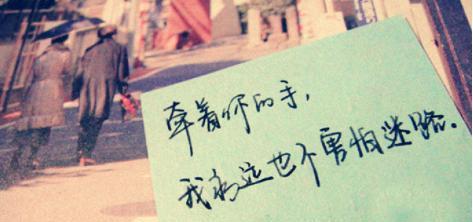 牵着你的手，
我永远也不害怕迷路.